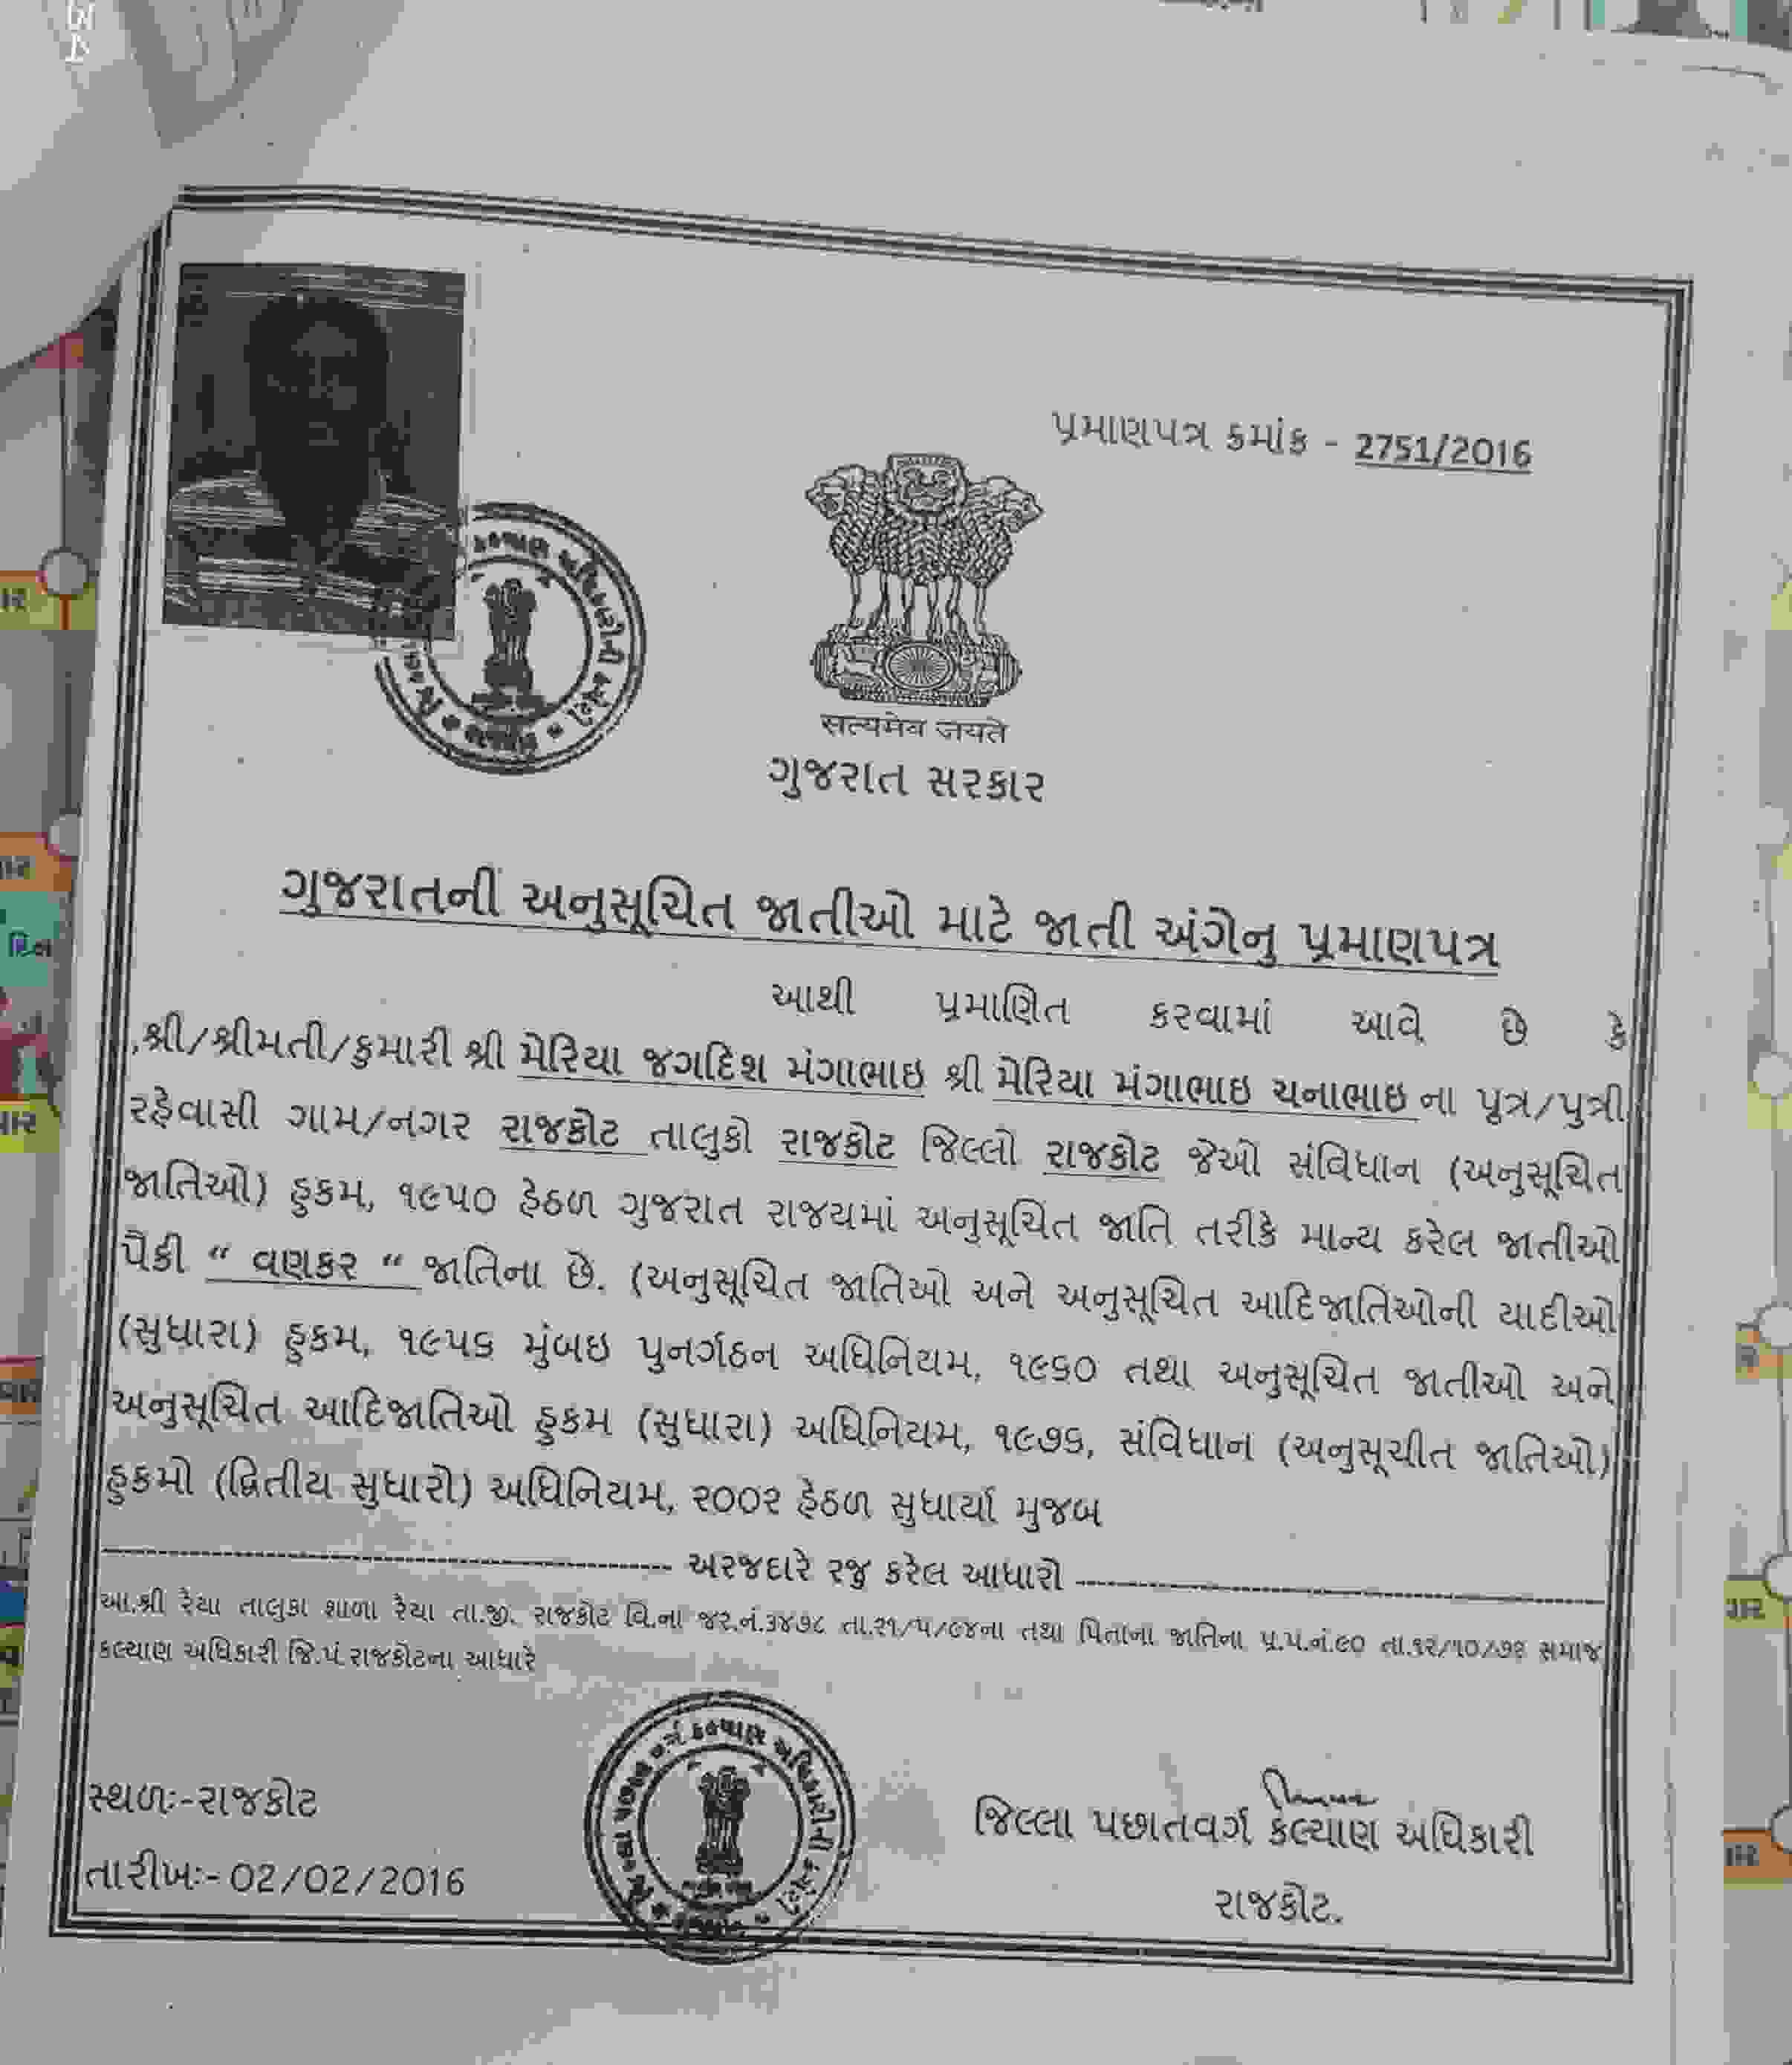 પ્રમાણપત્ર ક્રમાંક - 2751/2016
सत्यमेव जयते
ગુજરાત સરકાર
ગુજરાતની અનુસૂચિત જાતીઓ માટે જાતી અંગેનુ પ્રમાણપત્ર
આથી પ્રમાણિત કરવામાં આવે છે કે
,શ્રી/શ્રીમતી/કુમારી શ્રી મેરિયા જગદિશ મંગાભાઇ શ્રી મેરિયા મંગાભાઇ ચનાભાઇ ના પૂત્ર/પુત્રી
રહેવાસી ગામ/નગર રાજકોટ તાલુકો રાજકોટ જિલ્લો રાજકોટ જેઓ સંવિધાન (અનુસૂચિત
જાતિઓ) હુકમ, ૧૯૫૦ હેઠળ ગુજરાત રાજયમાં અનુસૂચિત જાતિ તરીકે માન્ય કરેલ જાતીઓ
પૈકી “ વણકર “ જાતિના છે. (અનુસૂચિત જાતિઓ અને અનુસૂચિત આદિજાતિઓની યાદીઓ
(સુધારા) હુકમ, ૧૯૫૬ મુંબઇ પુનર્ગઠન અધિનિયમ, ૧૯૬૦ તથા અનુસૂચિત જાતીઓ અને
અનુસૂચિત આદિજાતિઓ હુકમ (સુધારા) અધિનિયમ, ૧૯૭૬, સંવિધાન (અનુસૂચીત જાતિઓ)
હુકમો (દ્વિતીય સુધારો) અધિનિયમ, ૨૦૦૨ હેઠળ સુધાર્યા મુજબ
અરજદારે રજુ કરેલ આધારો
આ.શ્રી રૈયા તાલુકા શાળા રૈયા તા.જી. રાજકોટ વિ.ના જર.નં.૩૪૭૮ તા.૨૧/૫/૯૪ના તથા પિતાના જાતિના પ્ર.પ.નં.૯૦ તા.૧૨/૧૦/૭૬ સમાજ
કલ્યાણ અધિકારી જિ.પં.રાજકોટના આધારે
સ્થળઃ-રાજકોટ
તારીખઃ- 02/02/2016
જિલ્લા પછાતવર્ગ કલ્યાણ અધિકારી
રાજકોટ.